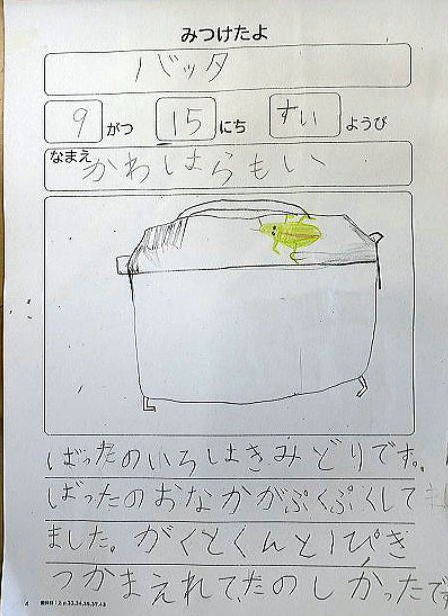 みつけたよ
バッタ
9がつ 15にち すいようび
なまえ かわはらもい
ばったのいろはきみどりです。
ばったのおなかがぷくぷくして
ました。がくとくんと1ぴき
つかまえれてたのしかったで
4